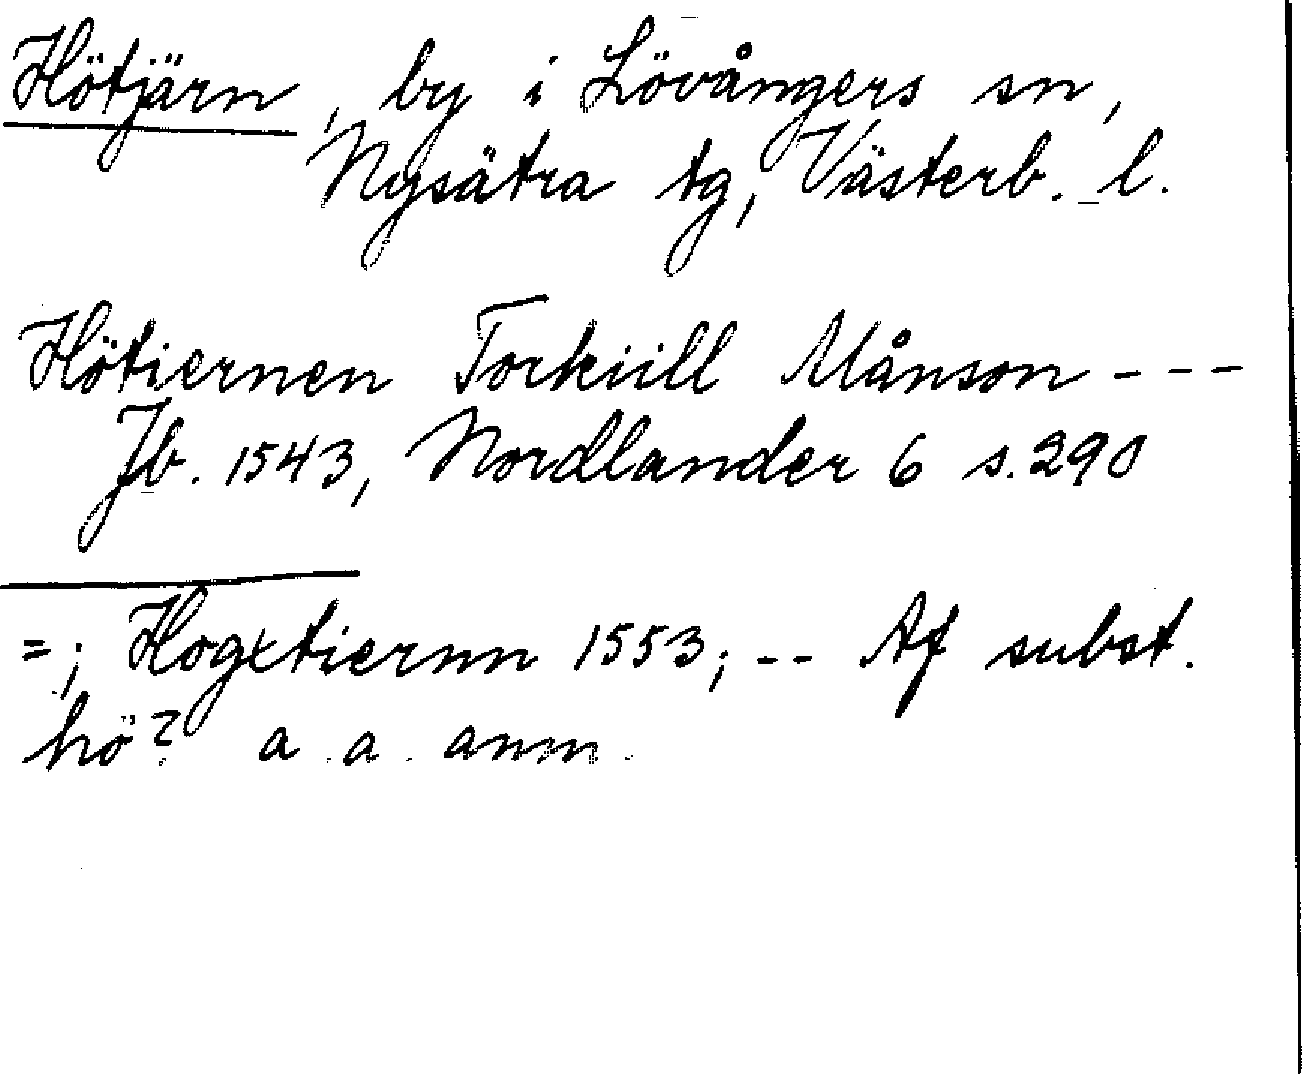 Hötjärn, by i Lövångers sn,
Nysätra tg, Västerb. l.
Hötiernen Torkiill Månson - - -
Jb. 1543, Nordlander 6 s. 290
= ; Hogxtiernn 1553; - - Af subst.
hö? a. a. anm.